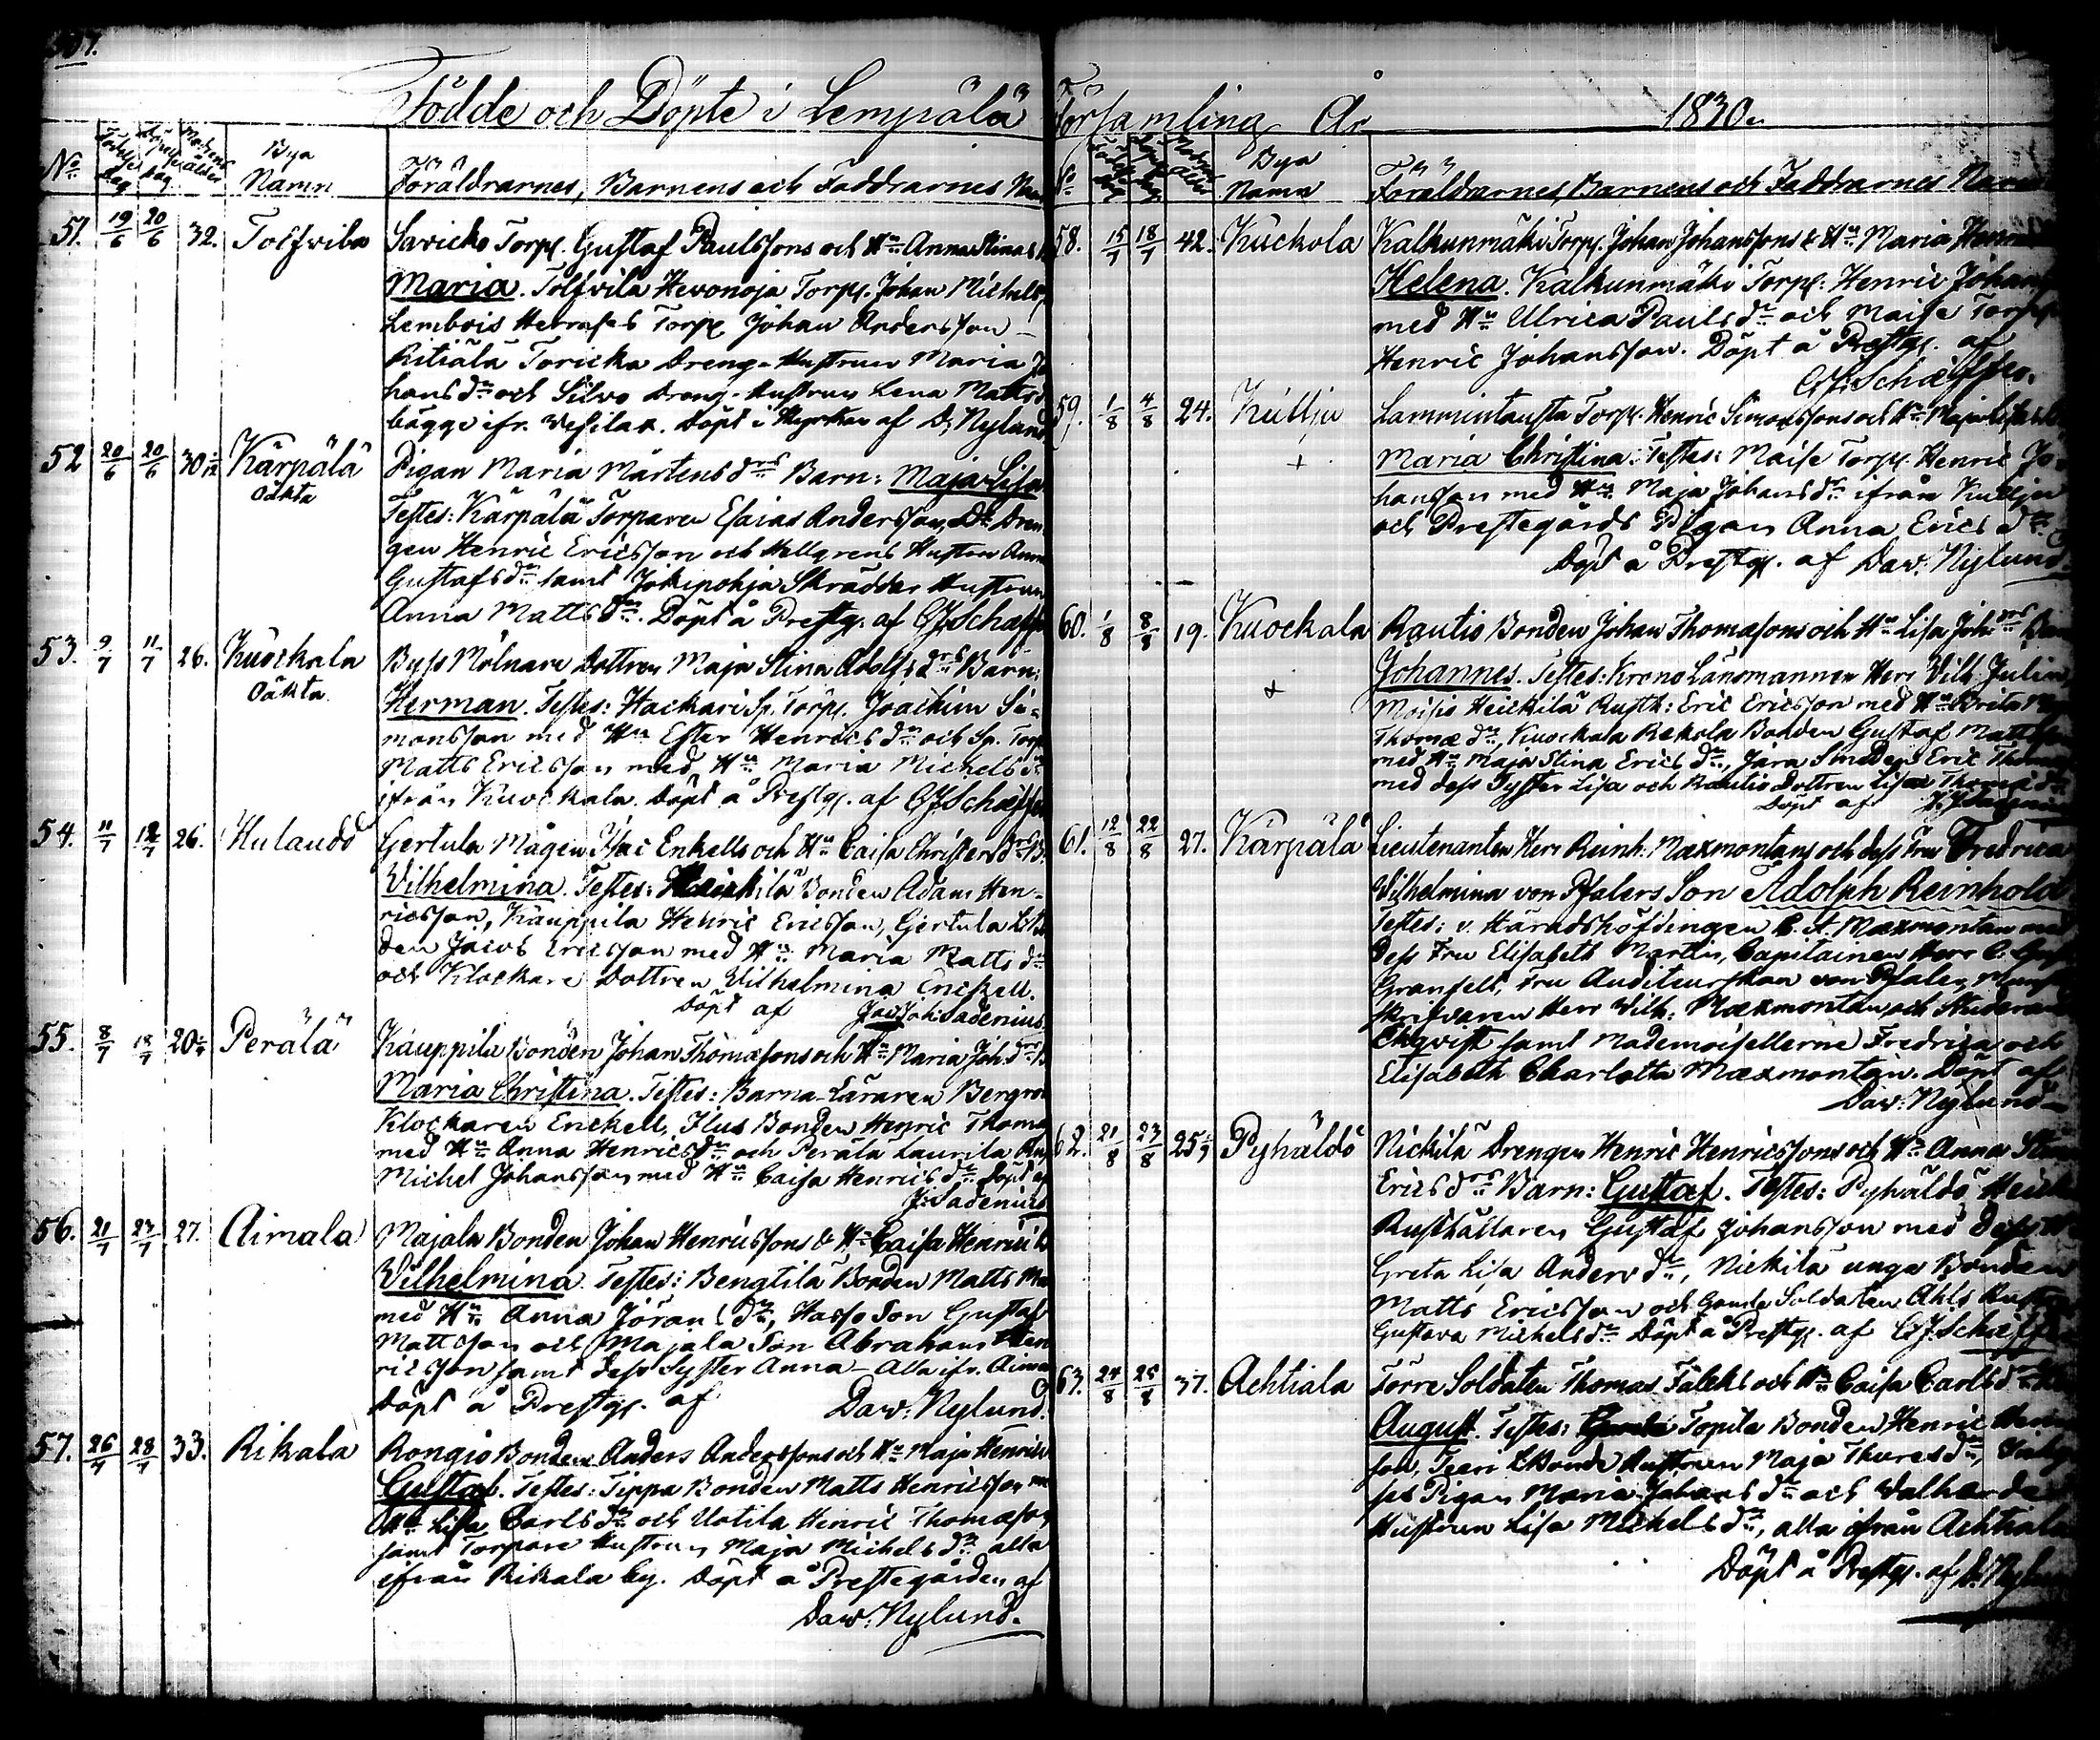 Födde och Döpte i Lempälä Församling År 1830.
No Födelse dag Döpelse dag Modrens ålder Bya Namn Föräldrarnes, Barnens och Faddrarnes
51. 19/6 20/6 32. Tolfvila Savicko Torp. Gustaf Paulssons och Hu Anna Stinas
Maria. Tolfvila Hevonoja Torp. Johan Michels
Lembois Torp Johan Andersson
Toricka Dreng-Hustrun Maria Jo
hans dr och Silvo Dreng-Hustrun Lena Matts
bägge ifr. Vesilax. Döpt i af D. Nylund
52 20/6 20/6 30 Kärpälä Pigan Maria Mårtens drs Barn: Maja Lisa
Oäkta Testes: Kärpälä Torparen Esaias Andersson, Do Dren
gen Henric Ericsson och Hellgrens Hustru Anna
Gustafs dr samt Jokipohja Skräddar Hustrun
Anna Matts dr. Döpt å Prestg. af
53. 9/7 11/7 26. Kuockala Byss Mölnare Dottren Maja Stina Adolfs drs Barn:
Oäkta Herman. Testes: Hackari Sp. Torp. Joachim Si-
monsson med Hu Ester Henrics dr och Sp. Torp
Matts Ericsson med Hu Maria Michels dr
ifrån Kuockala. Döpt å Prestg. af
54. 11/7 26. Hulaudd Gertula Mågen Isac Enkells och Hu Caisa Christers drs B.
Vilhelmina. Testes: Bonden Adam Hen-
ricsson, Kauppila Henric Ericsson, Gertula
den Jacob Ericsson med Hu Maria Matts dr
och Klockare Dottren Wilhelmina Enckell.
Döpt af Joh: Sadenius
55. 8/7 18/7 20 Perälä Kauppila Bonden Johan Thomæsons och Hu Maria Joh. drs B
Maria Christina. Testes: Barna-Läraren Bergro
Klockaren Enckell, Ilus Bonden Henric Thomæ
med Hu Anna Henrics dr och Perälä Laurila
Michel Johansson med Hu Caisa Henrics dr Döpt af
J: Sadenius
56. 21/7 23/7 27. Aimala Majala Bonden Johan Henricssons & Hu Caisa Henrics
Vilhelmina. Testes: Bengtilä Bonden Matts
med Hu Anna Jörans dr, Hasso Son Gustaf
Mattsson och Majala Son Abraham Hen
ricsson samt dess Syster Anna - Alla ifr. Aima
Döpt å Prestg. af Dav: Nylund.
57. 26/7 28/7 33. Rikala Rongio Bonden Anders Anderssons och Hu Maja Henrics
Gustaf. Testes: Sippa Bonden Matts Henricsson
Hu Lisa Carls dr och Uotila Henric Thomæson
samt Torpare Hustrun Maja Michels dr alla
ifrån Rikala by. Döpt å Prestegården af
Dav: Nylund.
No Bya Namn Föräldrarnes, Barnens och Faddrarnes
58. 15/7 18/7 42. Kuckola Kalkunmäki Torp. Johan Johanssons & Hu Maria
Helena. Kalkunmäki Torp: Henric Johans
med Hu Ulrica Pauls dr och Maise Torp
Henric Johansson. Döpt å Prestg. af
59. 1/8 4/8 24. Kulju Lammintausta Torp. Henric Simonssons och Hu Maja Lisas
+ Maria Christina. Testes: Maise Torp. Henric Jo-
hansson med Hu Maja Johans dr ifrån Kulju
och Prestegårds Pigan Anna Erics dr
Döpt å Prestg. af Dav: Nylund.
60. 1/8 8/8 19. Kuockala Rautio Bonden Johan Thomæsons och Hu Lisa Joh drs
+ Johannes. Testes: Krono Länsmannen Herr Vilh: Julin,
Moisio Heickilä Rusth: Eric Ericsson med Hu Brita
Thomæ dr, Kuockala Rekola Bonden Gustaf Mattsson
med Hu Maja Stina Erics dr, Jära Smeden Eric Thomæ
med dess Syster Lisa och Rautio Dottren Lisa Thomæ dr
Döpt af
61. 12/8 22/8 27. Kärpälä Lieutenanten Herr Reinh: Mæxmontans och dess Fru Fredrica
Vilhelmina von Pfalers Son Adolph Reinhold
Testes: v. Häradshöfdingen C. A. Mæxmontan med
dess Fru Elisabeth Martin, Capitainen Herr C.
Granfelt, Fru Auditeurskan von Pfaler,
skrifvaren Herr Vilh: Mæxmontan, och Studeran
Ekqvist samt Mademoisellerne Fredrica och
Elisabeth Charlotta Mæxmontan. Döpt af
Dav: Nylund
62. 21/8 23/8 25 Pyhäldö Nickilä Drengen Henric Henricssons och Hu Anna
Erics drs Barn: Gustaf. Testes: Pyhäldö
Rusthållaren Gustaf Johansson med dess
Greta Lisa Anders dr, Nickilä unga Bonden
Matts Ericsson och Gamla Soldaten Ahls
Gustava Michels dr Döpt å Prestg. af
63. 24/8 25/8 37. Achtiala Torre Soldaten Thomas Falcks och Hu Caisa Carls drs
August. Testes: Topila Bonden Henric
son, Hustrun Maja Thures dr,
Pigan Maria Johans dr och
Hustrun Lisa Michels dr, alla ifrån Achtiala
Döpt å Prestg. af D: Nylund